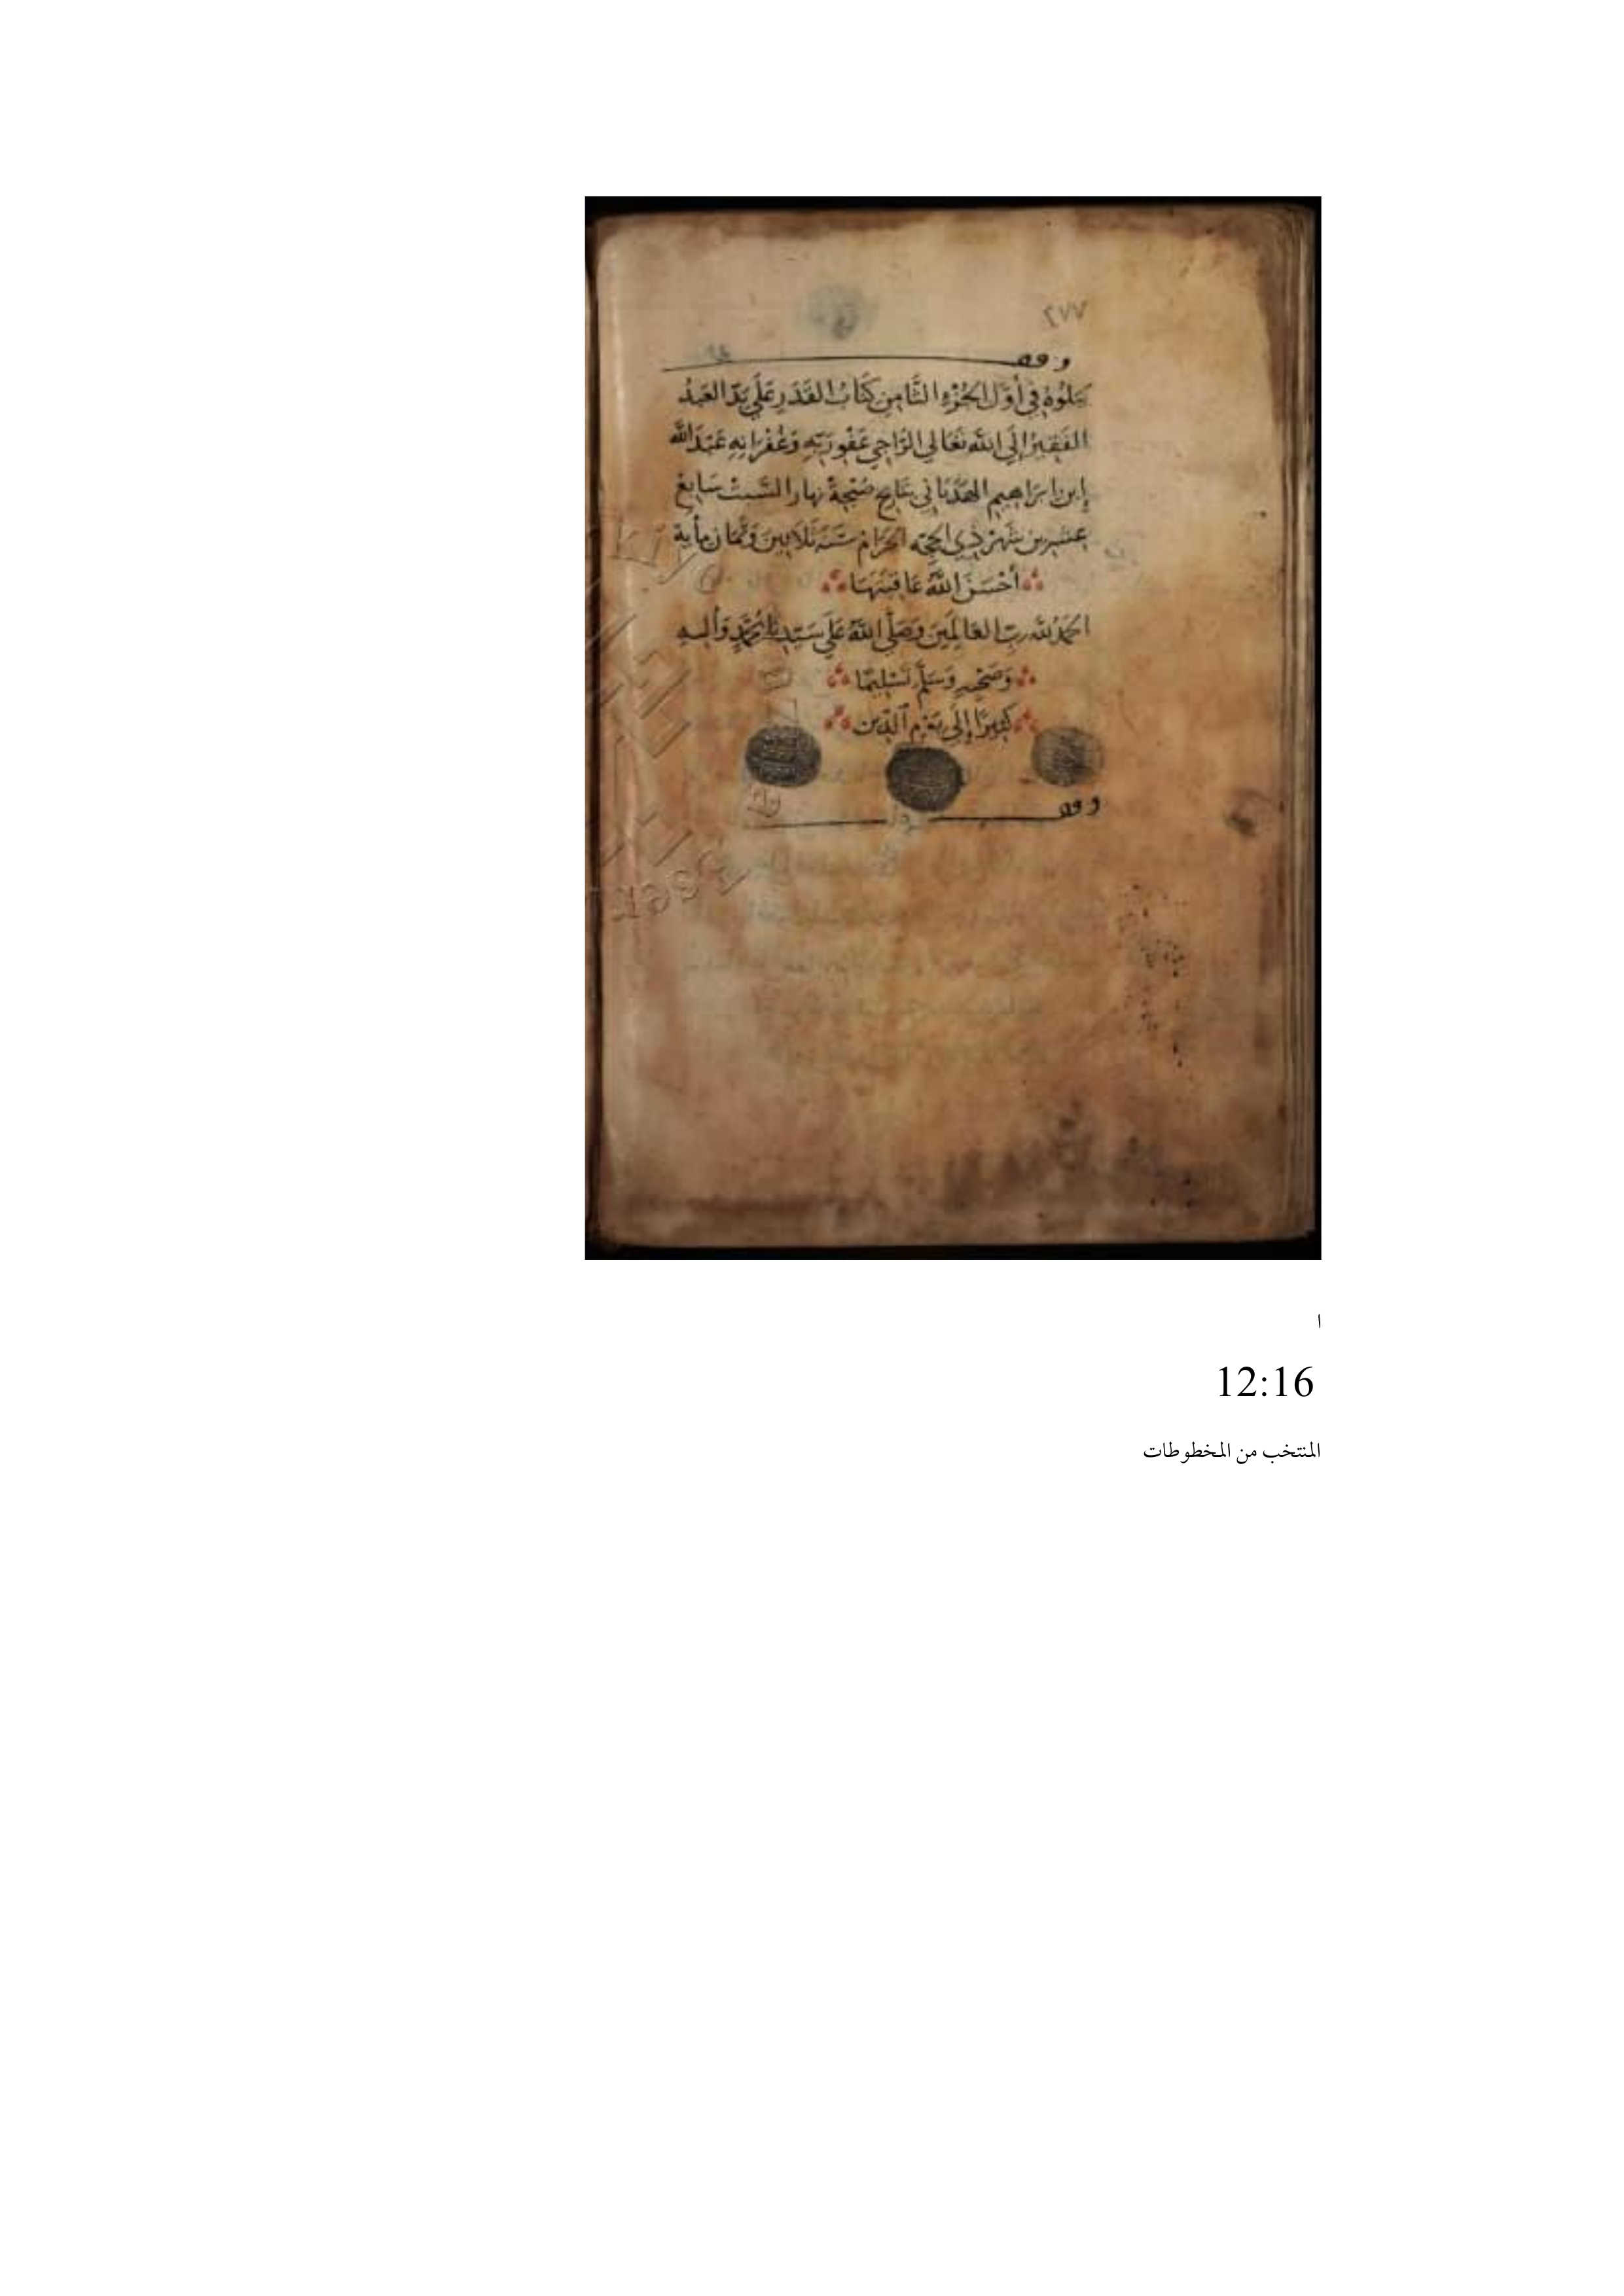 ٢٧٧
وقف
يتلوه في أول الجزء الثامن كتاب القدر على يد العبد
الفقير إلى الله تعالى الراجي عفو ربه وغفرانه عبد الله
إبن ابراهيم الهدباني بتاريخ صبحة نهار السبت سابع
عشرين شهر ذي الحجه الحرام سنة ثلاثين وثمان مأية
أحسن الله عاقبتها
الحمد لله رب العالمين وصلى الله على سيدنا محمد وأله
وصحبه وسلم تسليما
كثيرا إلى يوم الدين
وقف
ا
12:16
المنتخب من المخطوطات